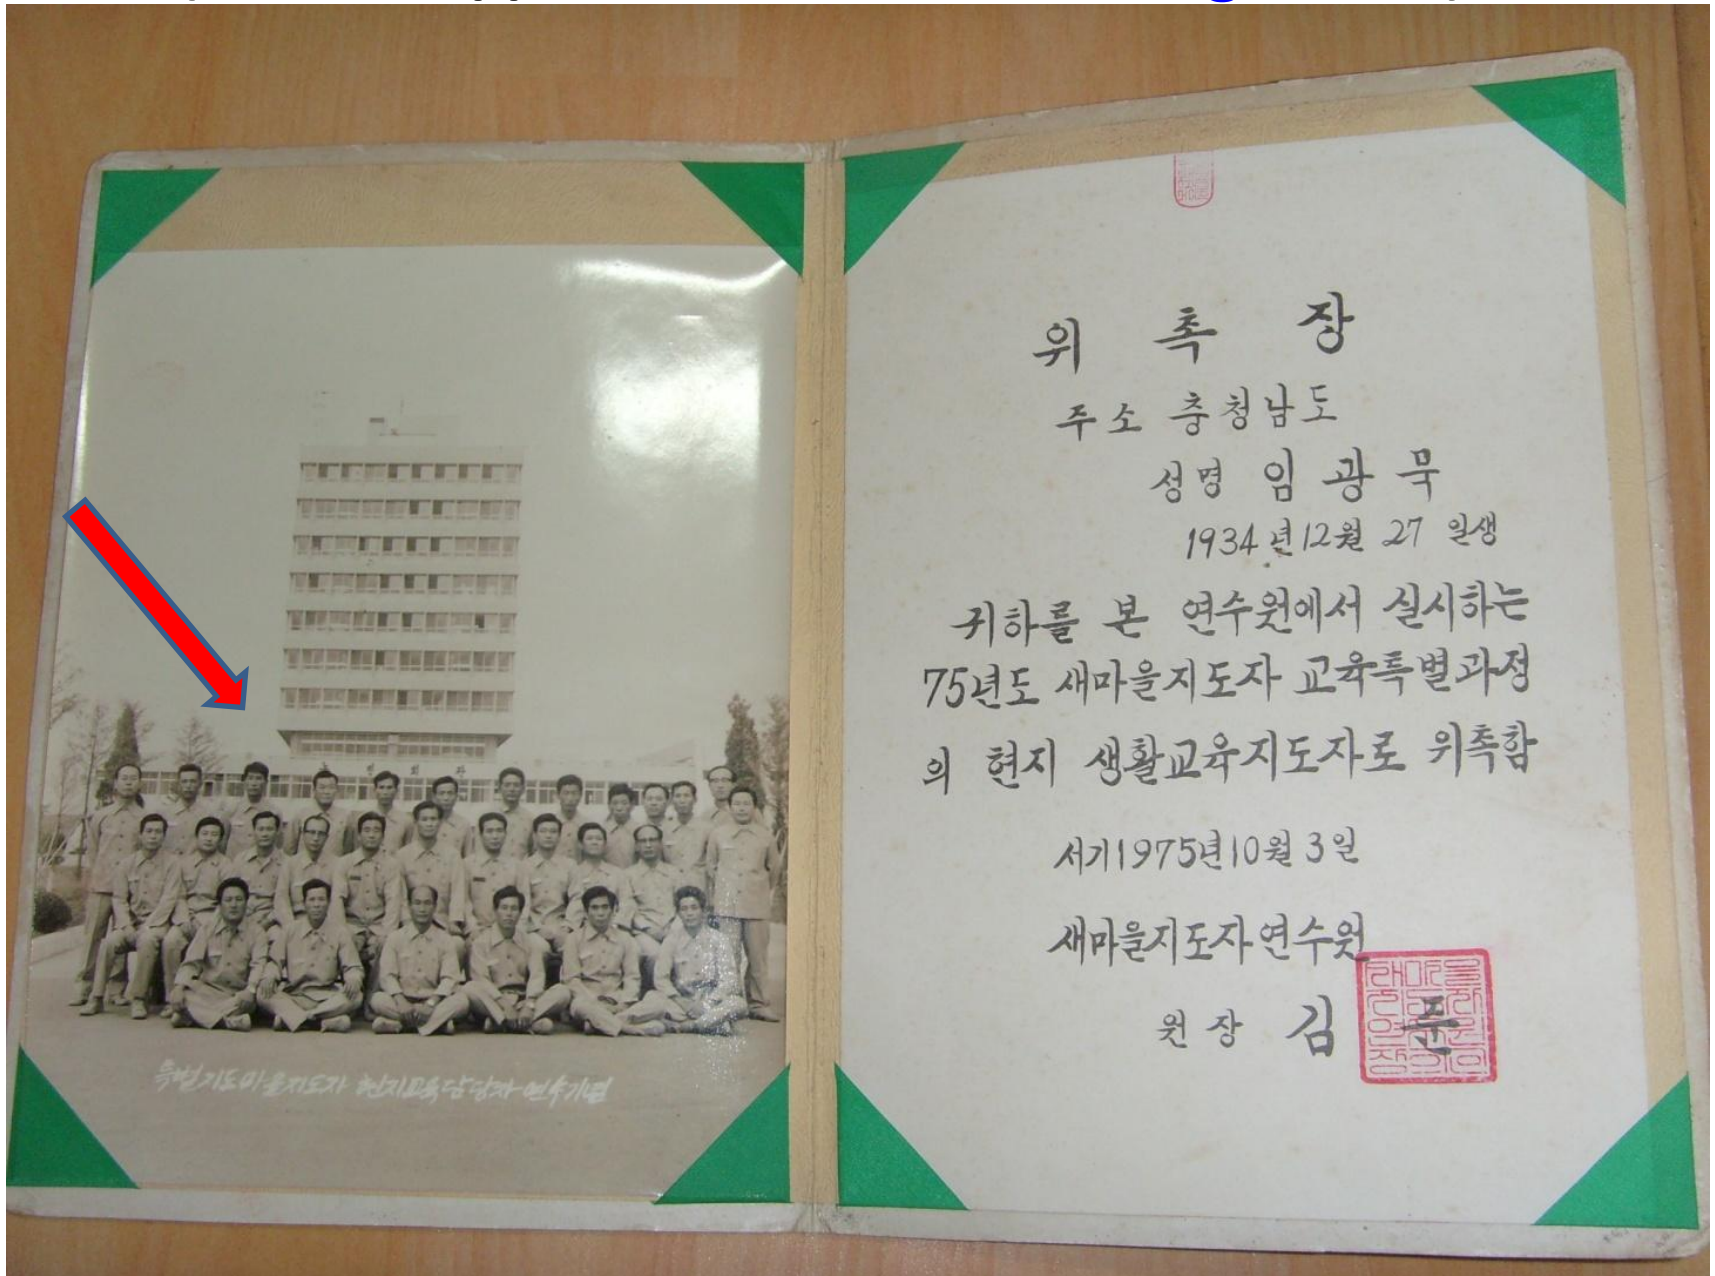 특별지도마을지도자 현지교육담당자 연수기념
위 촉 장
주소 충청남도
성명 임 광 묵
1934년 12월 27 일생
귀하를 본 연수원에서 실시하는
75년도 새마을지도자 교육특별과정
의 현지 생활교육지도자로 위촉함
서기1975년10월3일
새마을지도자연수원
원장 김 준